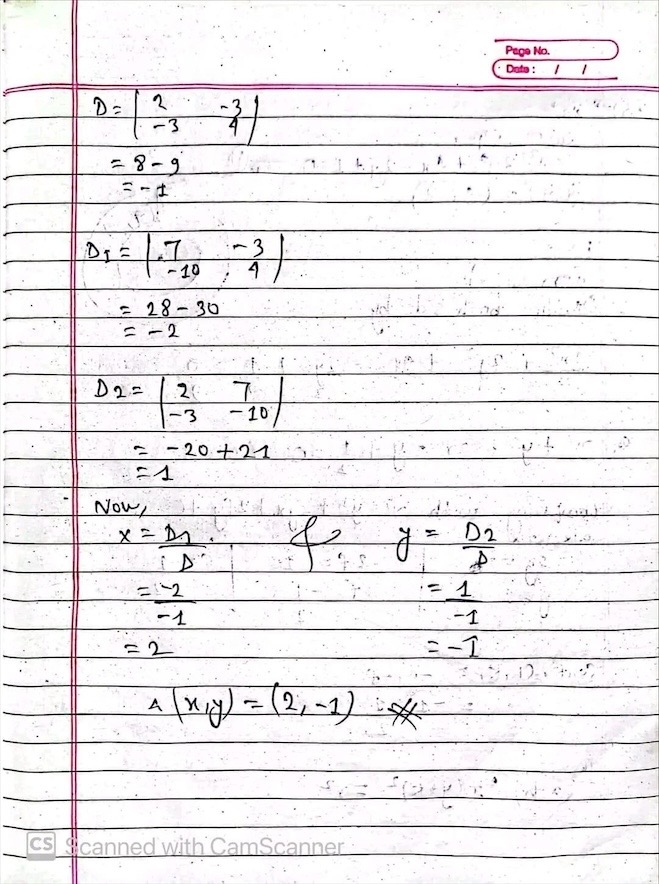 Page No.
Date : / /
D = | 2 -3 |
| -3 4 |
= 8 - 9
= -1
D1 = | 7 -3 |
| -10 4 |
= 28 - 30
= -2
D2 = | 2 7 |
| -3 -10 |
= -20 + 21
= 1
Now,
x = D1/D & y = D2/D
= -2/-1 = 1/-1
= 2 = -1
∴ (x,y) = (2, -1)
CS Scanned with CamScanner